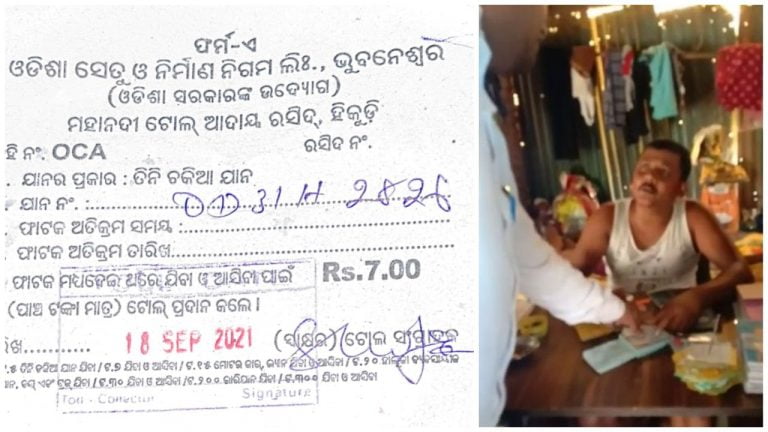 ଫର୍ମ-ଏ
ଓଡିଶା ସେତୁ ଓ ନିର୍ମାଣ ନିଗମ ଲିଃ., ଭୁବନେଶ୍ୱର
(ଓଡିଶା ସରକାରଙ୍କ ଉଦ୍ୟୋଗ)
ମହାନଦୀ ଟୋଲ୍ ଆଦାୟ ରସିଦ୍, ହିକୁଡ଼ି
ହି ନଂ. OCA ରସିଦ ନଂ.
. ଯାନର ପ୍ରକାର : ତିନି ଚକିଆ ଯାନ
. ଯାନ ନଂ. : 31 H 2826
. ଫାଟକ ଅତିକ୍ରମ ସମୟ :
. ଫାଟକ ଅତିକ୍ରମ ତାରିଖ
ଫାଟକ ମଧ୍ୟଦେଇ ଥରେ ଯିବା ଓ ଆସିବା ପାଇଁ Rs.7.00
(ପାଞ୍ଚ ଟଙ୍କା ମାତ୍ର) ଟୋଲ୍ ପ୍ରଦାନ କଲେ ।
18 SEP 2021 (ସ୍ୱାକ୍ଷର) ଟୋଲ
Signature